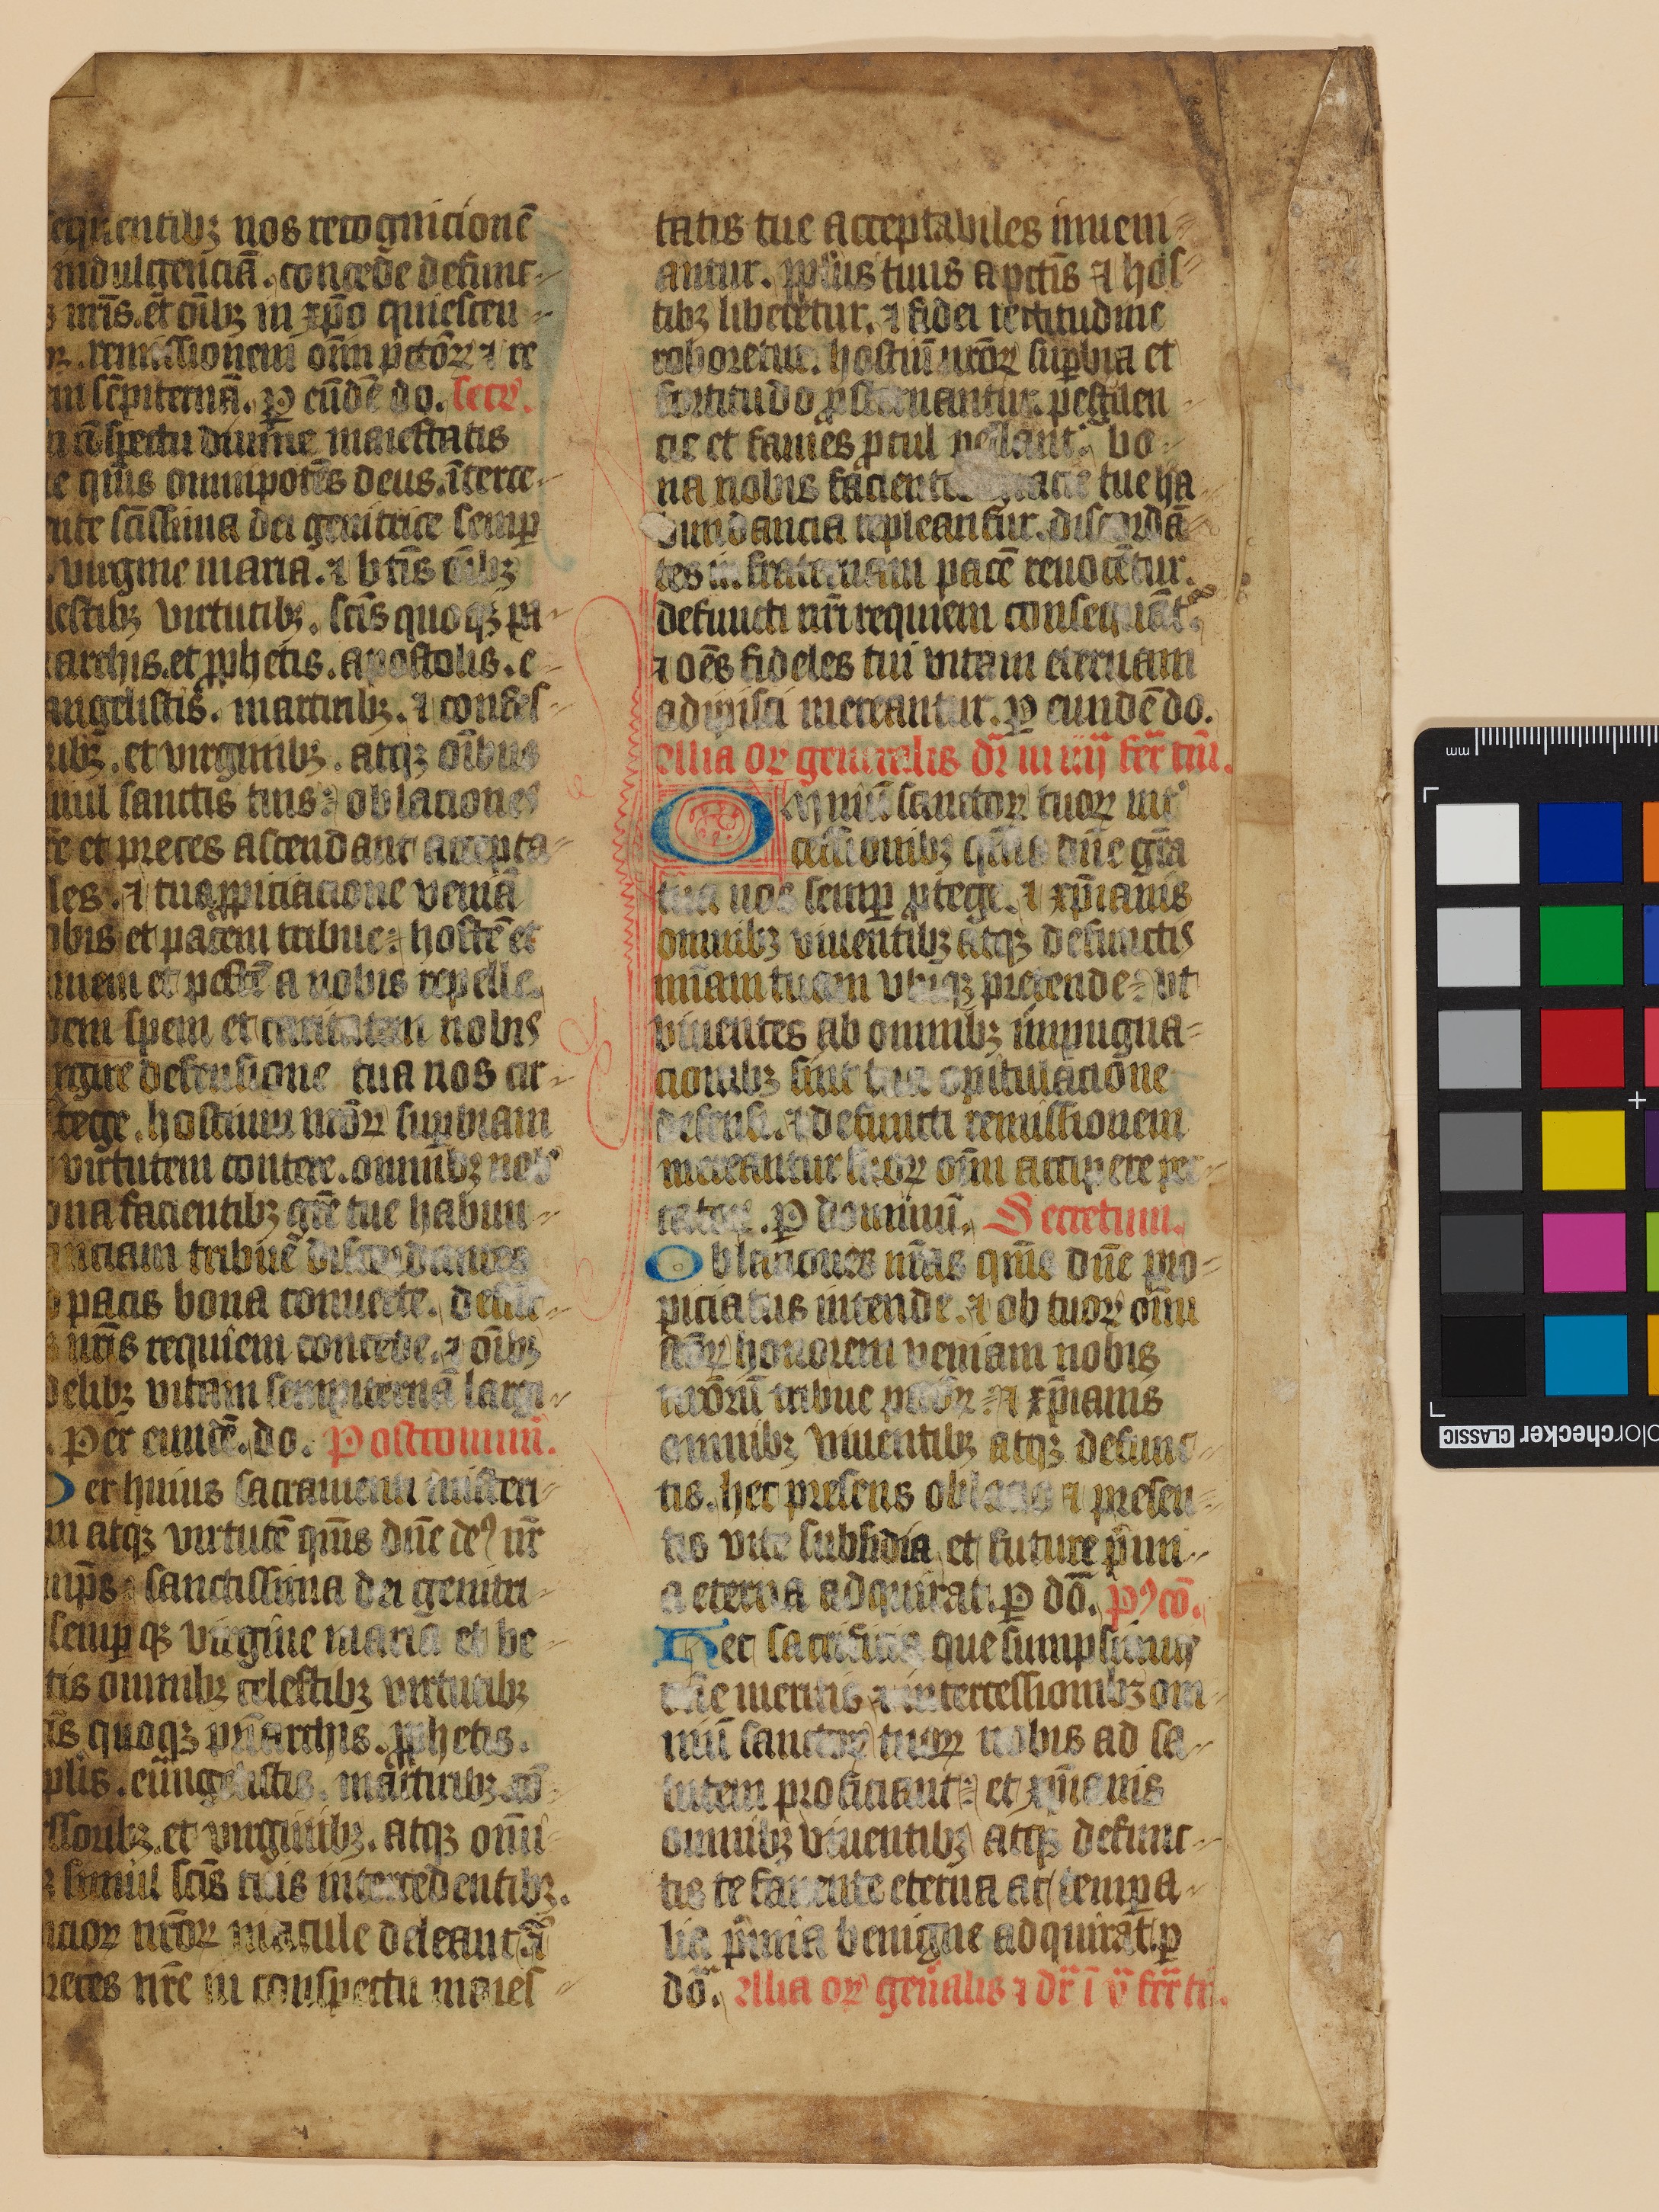 equentibꝫ nos recognicionē
indulgenciā. concede defunc⸗
s nr̄is. et oībꝫ in xp̄o quiescen⸗
bꝫ. remissionem om̄n pctōꝝ ⁊ re
em sēpiternā. ꝑ eūdē do. Secr̄.
In ꝯspectu diuine maiestatis
te qm̄s omnipotēs deus. īterce⸗
ente sc̄issima dei genitrice semꝑ
virgine maria. ⁊ btīs oībꝫ
lestibꝫ virtutibꝫ. sc̄is quoqꝫ pa⸗
iarchis. et ꝓphetis. apostolis. e⸗
angelistis. martiribꝫ. ⁊ confes⸗
ribꝫ. et virginibꝫ. atqꝫ oībus
mul sanctis tuis: oblaciones
r̄e et preces ascendant accepta⸗
les. ⁊ tua ꝓpiciacione veniā
obis et pacem tribue: hostē et
mem et pestē a nobis repelle.
dem spem et caritatem nobis
rgire defensione tua nos cir⸗
tege. hostium nr̄ōꝝ suꝑbiam
virtutem contere. omnibꝫ nob̾
ona facientibꝫ grē tue habun⸗
anciam tribue discordantes
pacis bona conuerte. defūc⸗
s nr̄is requiem concede. ⁊ oībꝫ
delibꝫ vitam sempiternā largi⸗
. Per eundē. do. Postcomūn̄.
Per huius sacramenti misteri⸗
m atqꝫ virtutē qm̄s dn̄e deꝰ nr̄
nip̄s. sanctissima dei genitri⸗
semꝑ qꝫ virgine maria et be⸗
tis omnibꝫ celestibꝫ virtutibꝫ
c̄is quoqꝫ pr̄iarchis. ꝓphetis.
plis. eūangelistis. martiribꝫ. cō⸗
ssoribꝫ. et virginibꝫ. atqꝫ omi⸗
ꝫ simul sc̄is tuis intercedentibꝫ.
ctoꝝ nr̄ōꝝ macule deleantᷣ ⁊
preces nr̄e in conspectu maies⸗
tatis tue acceptabiles inueni⸗
antur. ppl̄us tuus a pctīs ⁊ hos⸗
tibꝫ liberetur. ⁊ fidei rectitudine
roboretur. hostiū nr̄ōꝝ suꝑbia et
fortitudo ꝓsternantur. pestilen⸗
cie et fames ꝓcul pellantᷣ. bo⸗
na nobis facient gracie tue ha⸗
bundancia repleantur. discordā⸗
tes in fraternam pacē reuocētur.
defuncti nr̄i requiem consequātᷣ.
⁊ oēs fideles tui vitam eternam
adipisci mereantur. ꝑ eundē do.
Allia oꝝ generalis dr̄ in iiij fer̄ tm̄.
Omniū sanctoꝝ tuoꝝ int̾
cessionibꝫ qm̄s dn̄e grā
tua nos semꝑ ꝓtege. ⁊ xp̄ianis
omnibꝫ viuentibꝫ atqꝫ defunctis
mīam tuam vbiqꝫ pretende: vt
viuentes ab omnibꝫ impugna⸗
cionibꝫ sint tua opitulacione
defensi. ⁊ defuncti remissionem
mereantur suoꝝ om̄i accipere pec⸗
catoꝝ. ꝑ dominū. Secretum.
Oblaciones nr̄as qm̄s dn̄e pro⸗
piciatus intende. ⁊ ob tuoꝝ om̄i
sc̄ōꝝ honorem veniam nobis
nr̄orū tribue pctōꝝ: ⁊ xp̄ianis
omnibꝫ viuentibꝫ atqꝫ defunc⸗
tis. hec presens oblacio ⁊ presen⸗
tis vite subsidia et future p̄mi⸗
a eterna adquirat. ꝑ dō. pꝰcō.
Hec sacrificia que sumpsimus
dn̄e meritis ⁊ intercessionibꝫ om⸗
niū sanctoꝝ tuoꝝ nobis ad sa⸗
lutem proficiant: et xp̄ianis
omnibꝫ viuentibꝫ atqꝫ defunc⸗
tis te fauente eterna ac tempa⸗
lia p̄mia benigne adquirāt. ꝑ
dō. Allia oꝝ gen̄alis ⁊ dr̄ ī v̄ fer̄